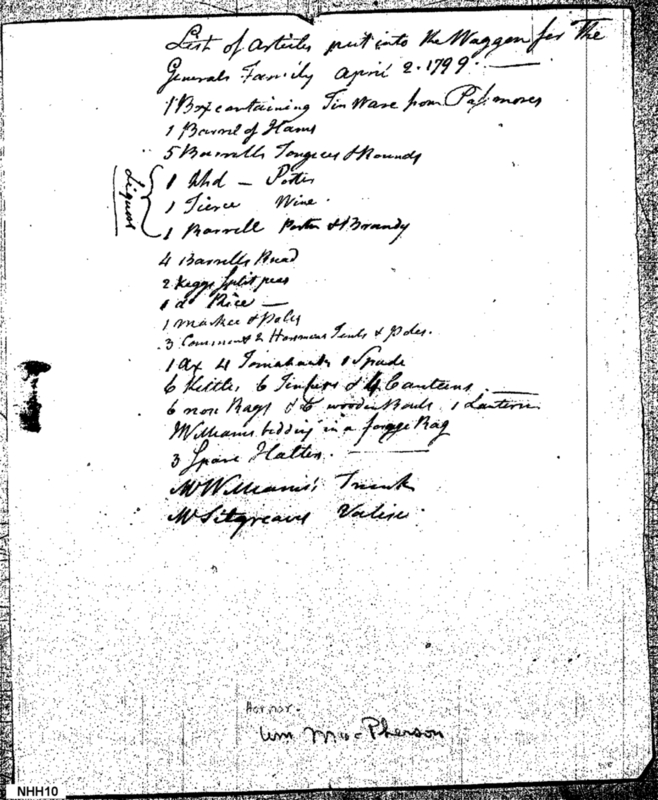 List of Articles put into the Waggon for The
Generals Family April 2. 1799.
1 Box containing Tin Ware from Passmores
1 Barrel of Hams
5 Barrells Tongues & Rounds
Liquor
1 Hhd — Porter
1 Tierce Wine.
1 Barrell Porter & Brandy
4 Barrells Bread
2 Keggs Split peas
1 do Rice —
1 Markee & Poles
3 Common & 2 Horsemens Tents & Poles.
1 Ax 4 Tomahawks 1 Spade
6 Kettles 6 & 4 Canteens
6 Bags & 6 wooden Bowls 1 Lantern
Williams bedding in a forage Bag
3 Spare Halters.
Mr Williams's Trunk
Mr Sitgreaves Valise.
Hornor.
Wm MacPherson
NHH10